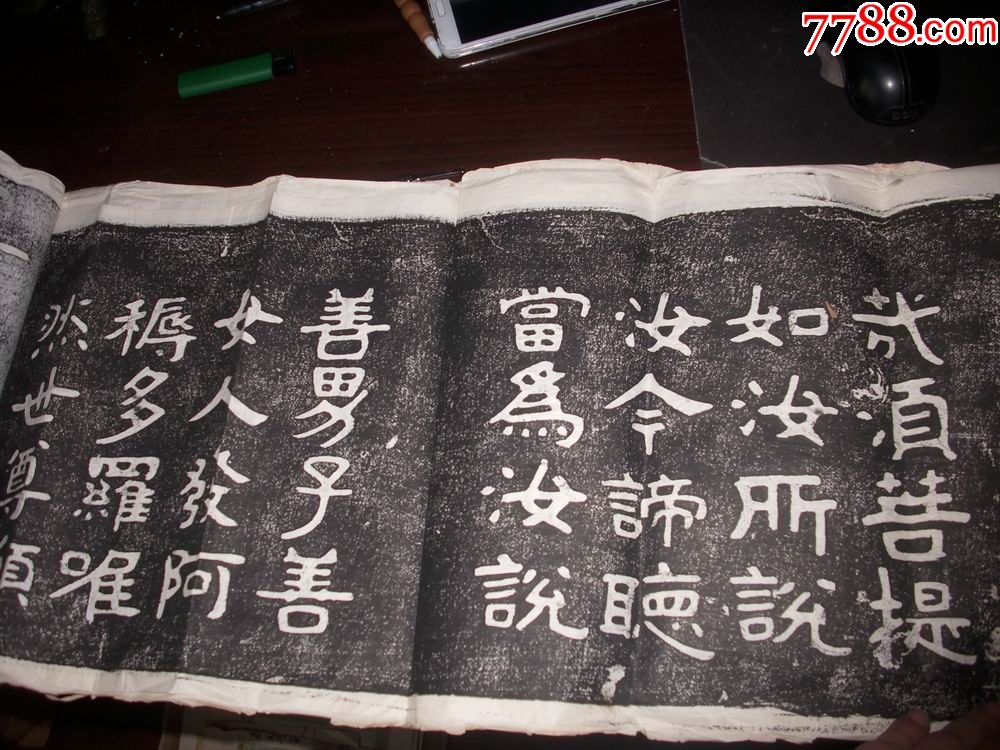 7788.com
哉須菩提
如汝所說
汝今諦聽
當為汝說
善男子善
女人發阿
耨多羅唯
然世尊願